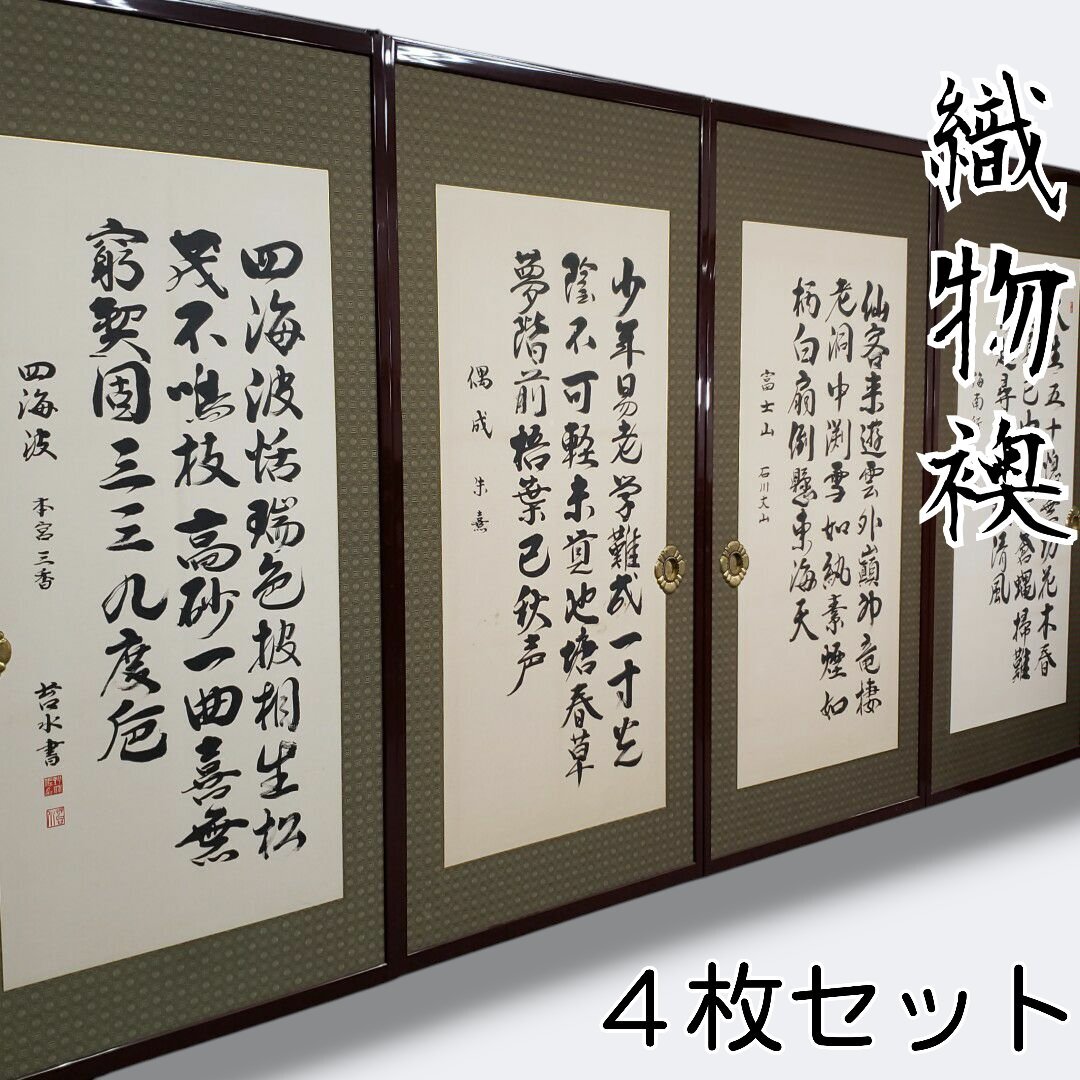 織物襖
人生五十愧無功花木春
蒼蠅掃難
清風
仙客来遊雲外巓神竜棲
老洞中渕雪如紈素煙如
柄白扇倒懸東海天
富士山 石川丈山
少年易老学難成一寸光
陰不可軽未覚池塘春草
夢階前梧葉已秋声
偶成 朱熹
四海波恬瑞色披相生松
茂不鳴枝高砂一曲喜無
窮契固三三九度卮
四海波 本宮三香
苔水書
4枚セット